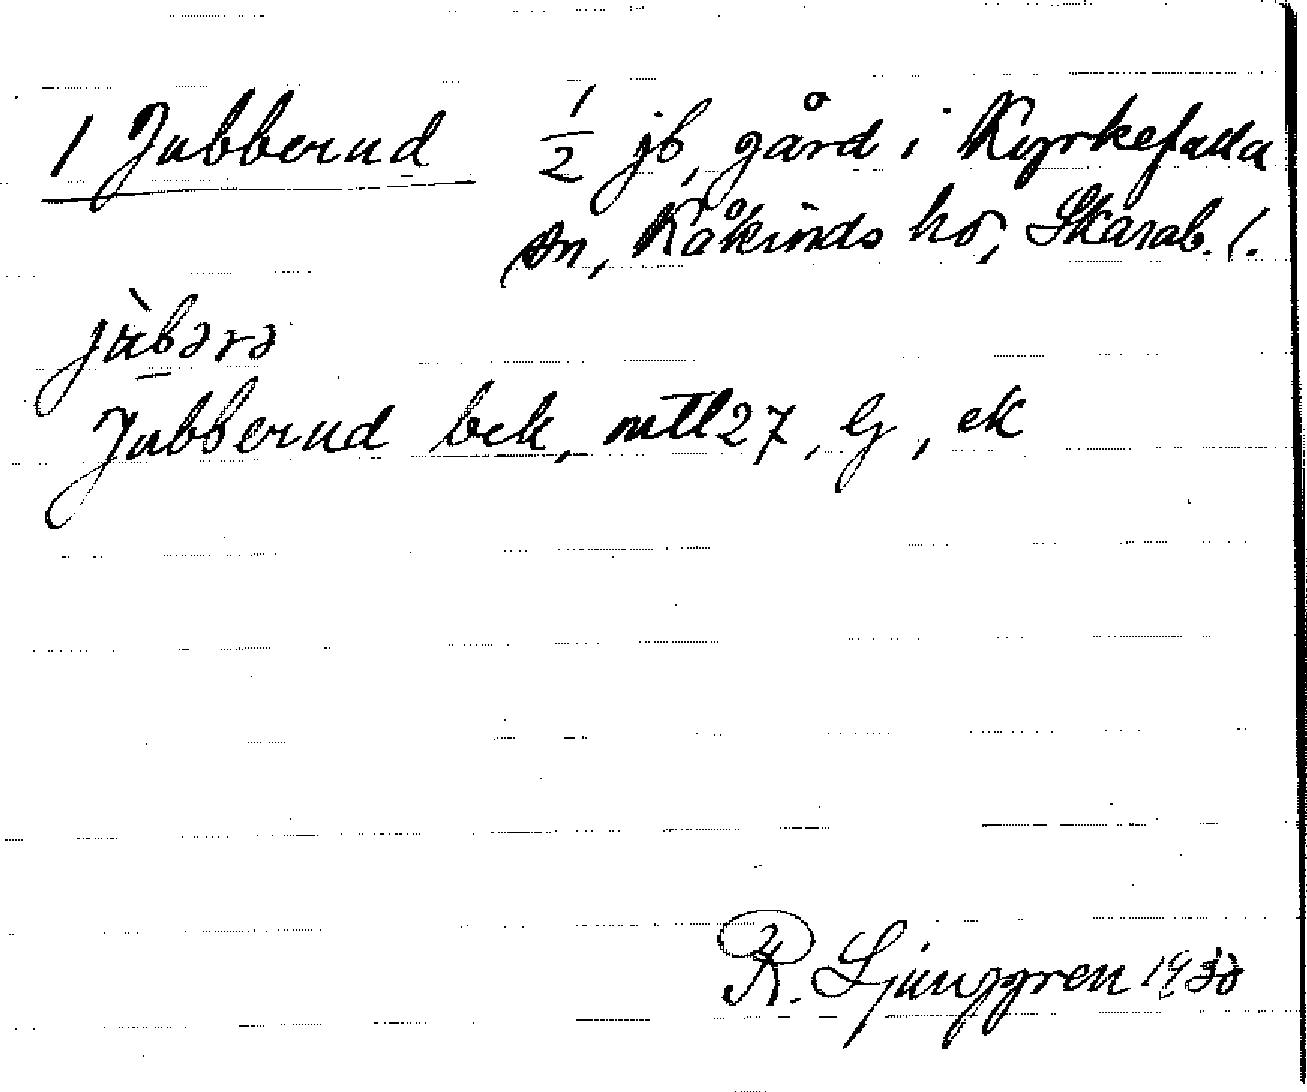 1 Jubberud 1/2 jb, gård i Kyrkefalla
sn, Kåkinds hd, Skarab. l.
jùbərə
Jubberud bek, mtl 27, G, ek
R. Ljunggren 19